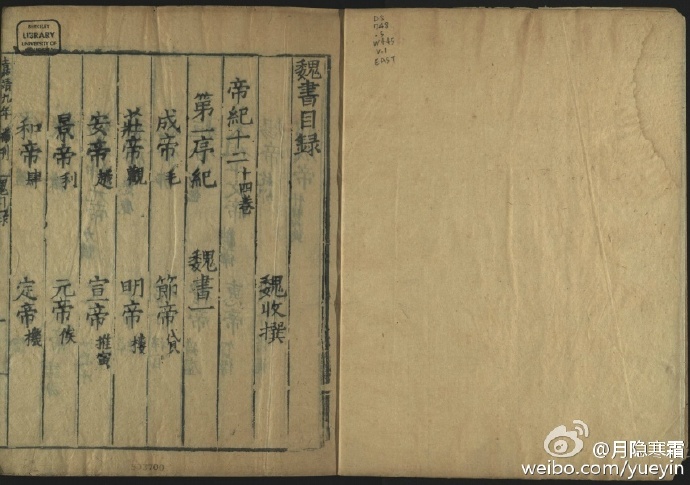 魏書目錄
魏收撰
帝紀十二十四卷
第一序紀 魏書一
成帝毛 節帝貸
莊帝觀 明帝樓
安帝越 宣帝推寅
景帝利 元帝俟
和帝肆 定帝機
靖九年
BERKELEY
LIBRARY
UNIVERSITY OF
DS
748
.5
W445
v.1
EAST
@月隐寒霜
weibo.com/yueyin